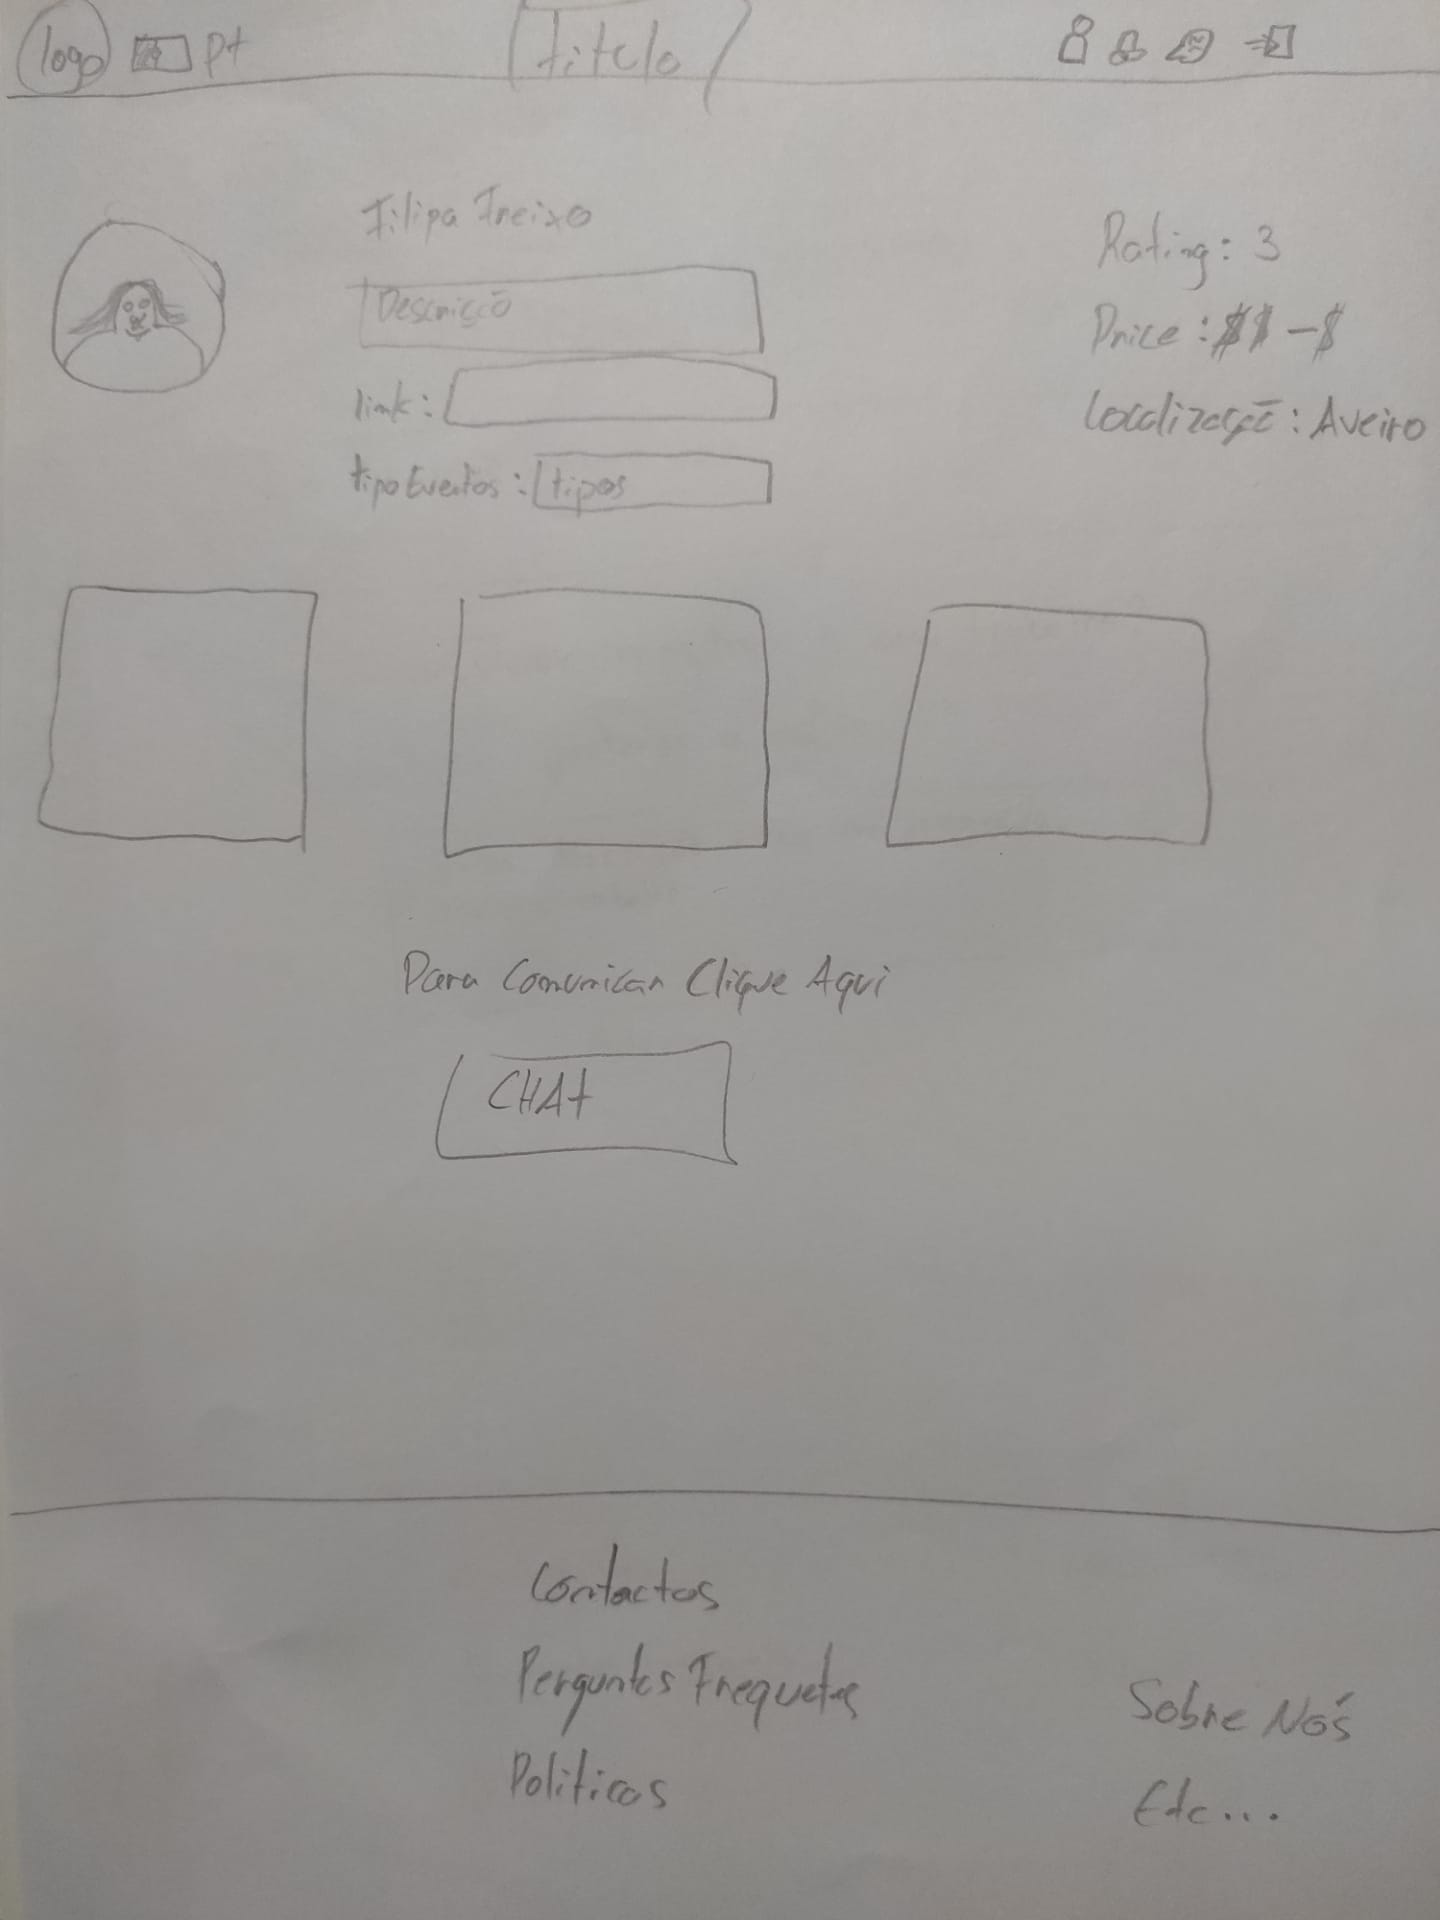 logo pt Titulo
Filipa Freixo
Descrição
link:
tipo Eventos: tipos
Rating: 3
Price: $$ - $
Localização: Aveiro
Para Comunicar Clique Aqui
CHAt
Contactos
Perguntas Frequetes
Politicas
Sobre Nós
Etc...